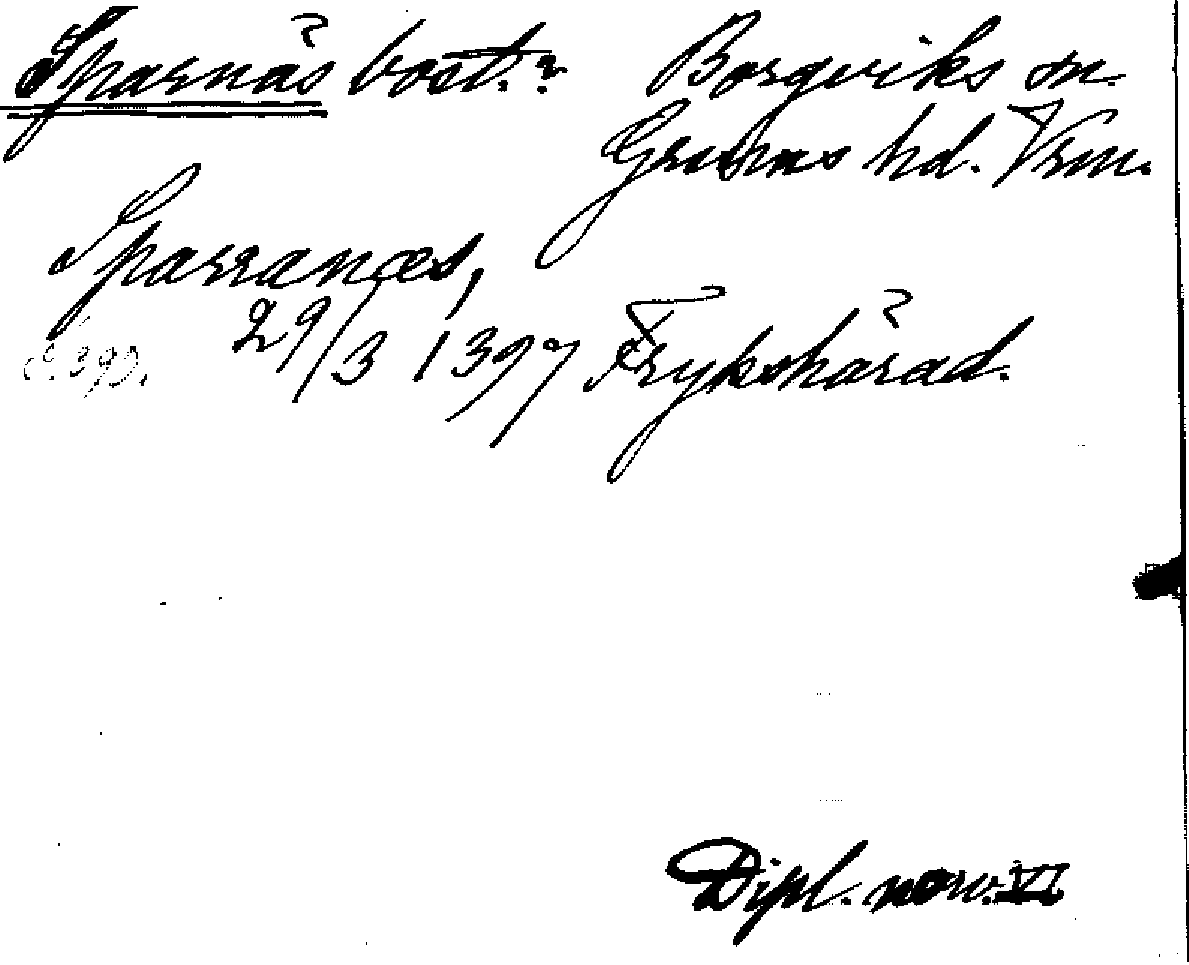 Sparnäs bost.? Borgviks sn.
Grums hd. Vrm.
Sparranæs,
s. 390. 29/3 1397 Frykshärad.
Dipl. norv. VI